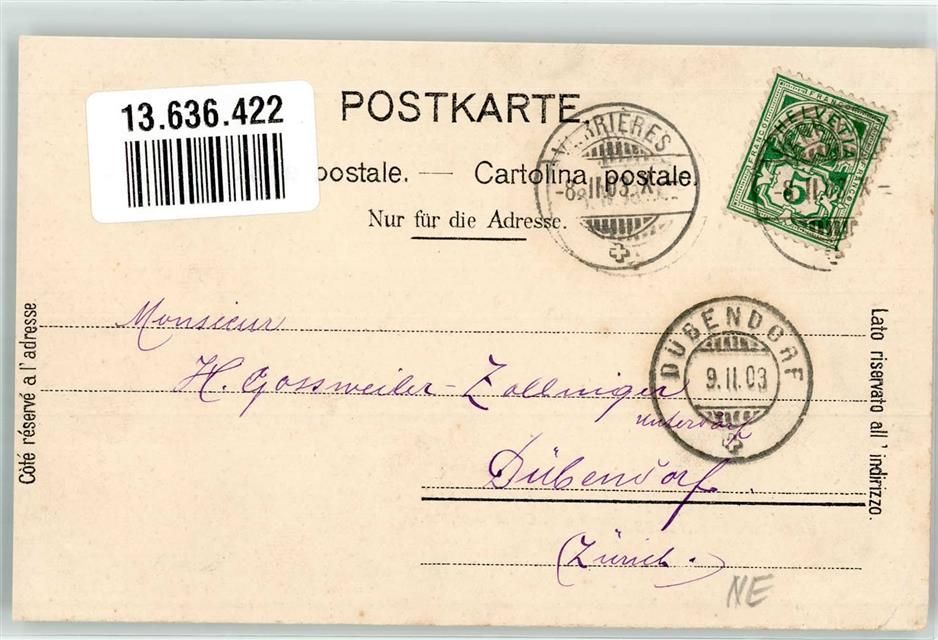 13.636.422
POSTKARTE.
postale. — Cartolina postale.
Nur für die Adresse.
VERRIÈRES
-8.II.03.
HELVETIA
FRANCO
5
-8.II
Côté réservé à l'adresse
Lato riservato all'indirizzo.
Monsieur
H. Gossweiler-Zollinger
unterdorf
Dübendorf.
(Zürich.)
DÜBENDORF
9.II.03
NE